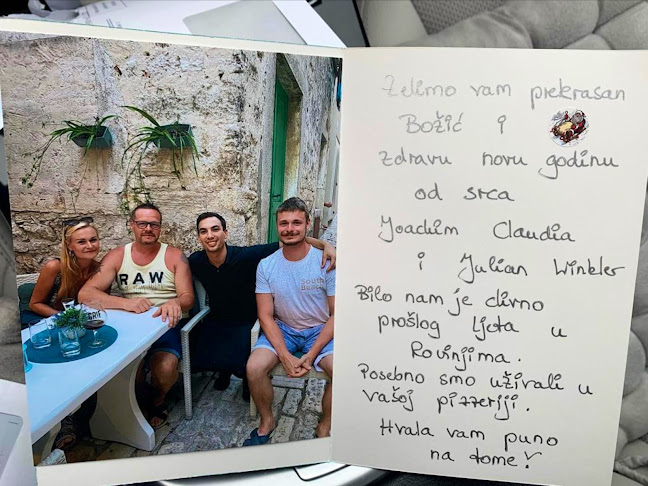 RAW
South
Beach
Želimo vam prekrasan
Božić i
zdravu novu godinu
od srca
Joachim Claudia
i Julian Winkler
Bilo nam je divno
prošlog ljeta u
Rovinjima.
Posebno smo uživali u
vašoj pizzeriji.
Hvala vam puno
na tome!